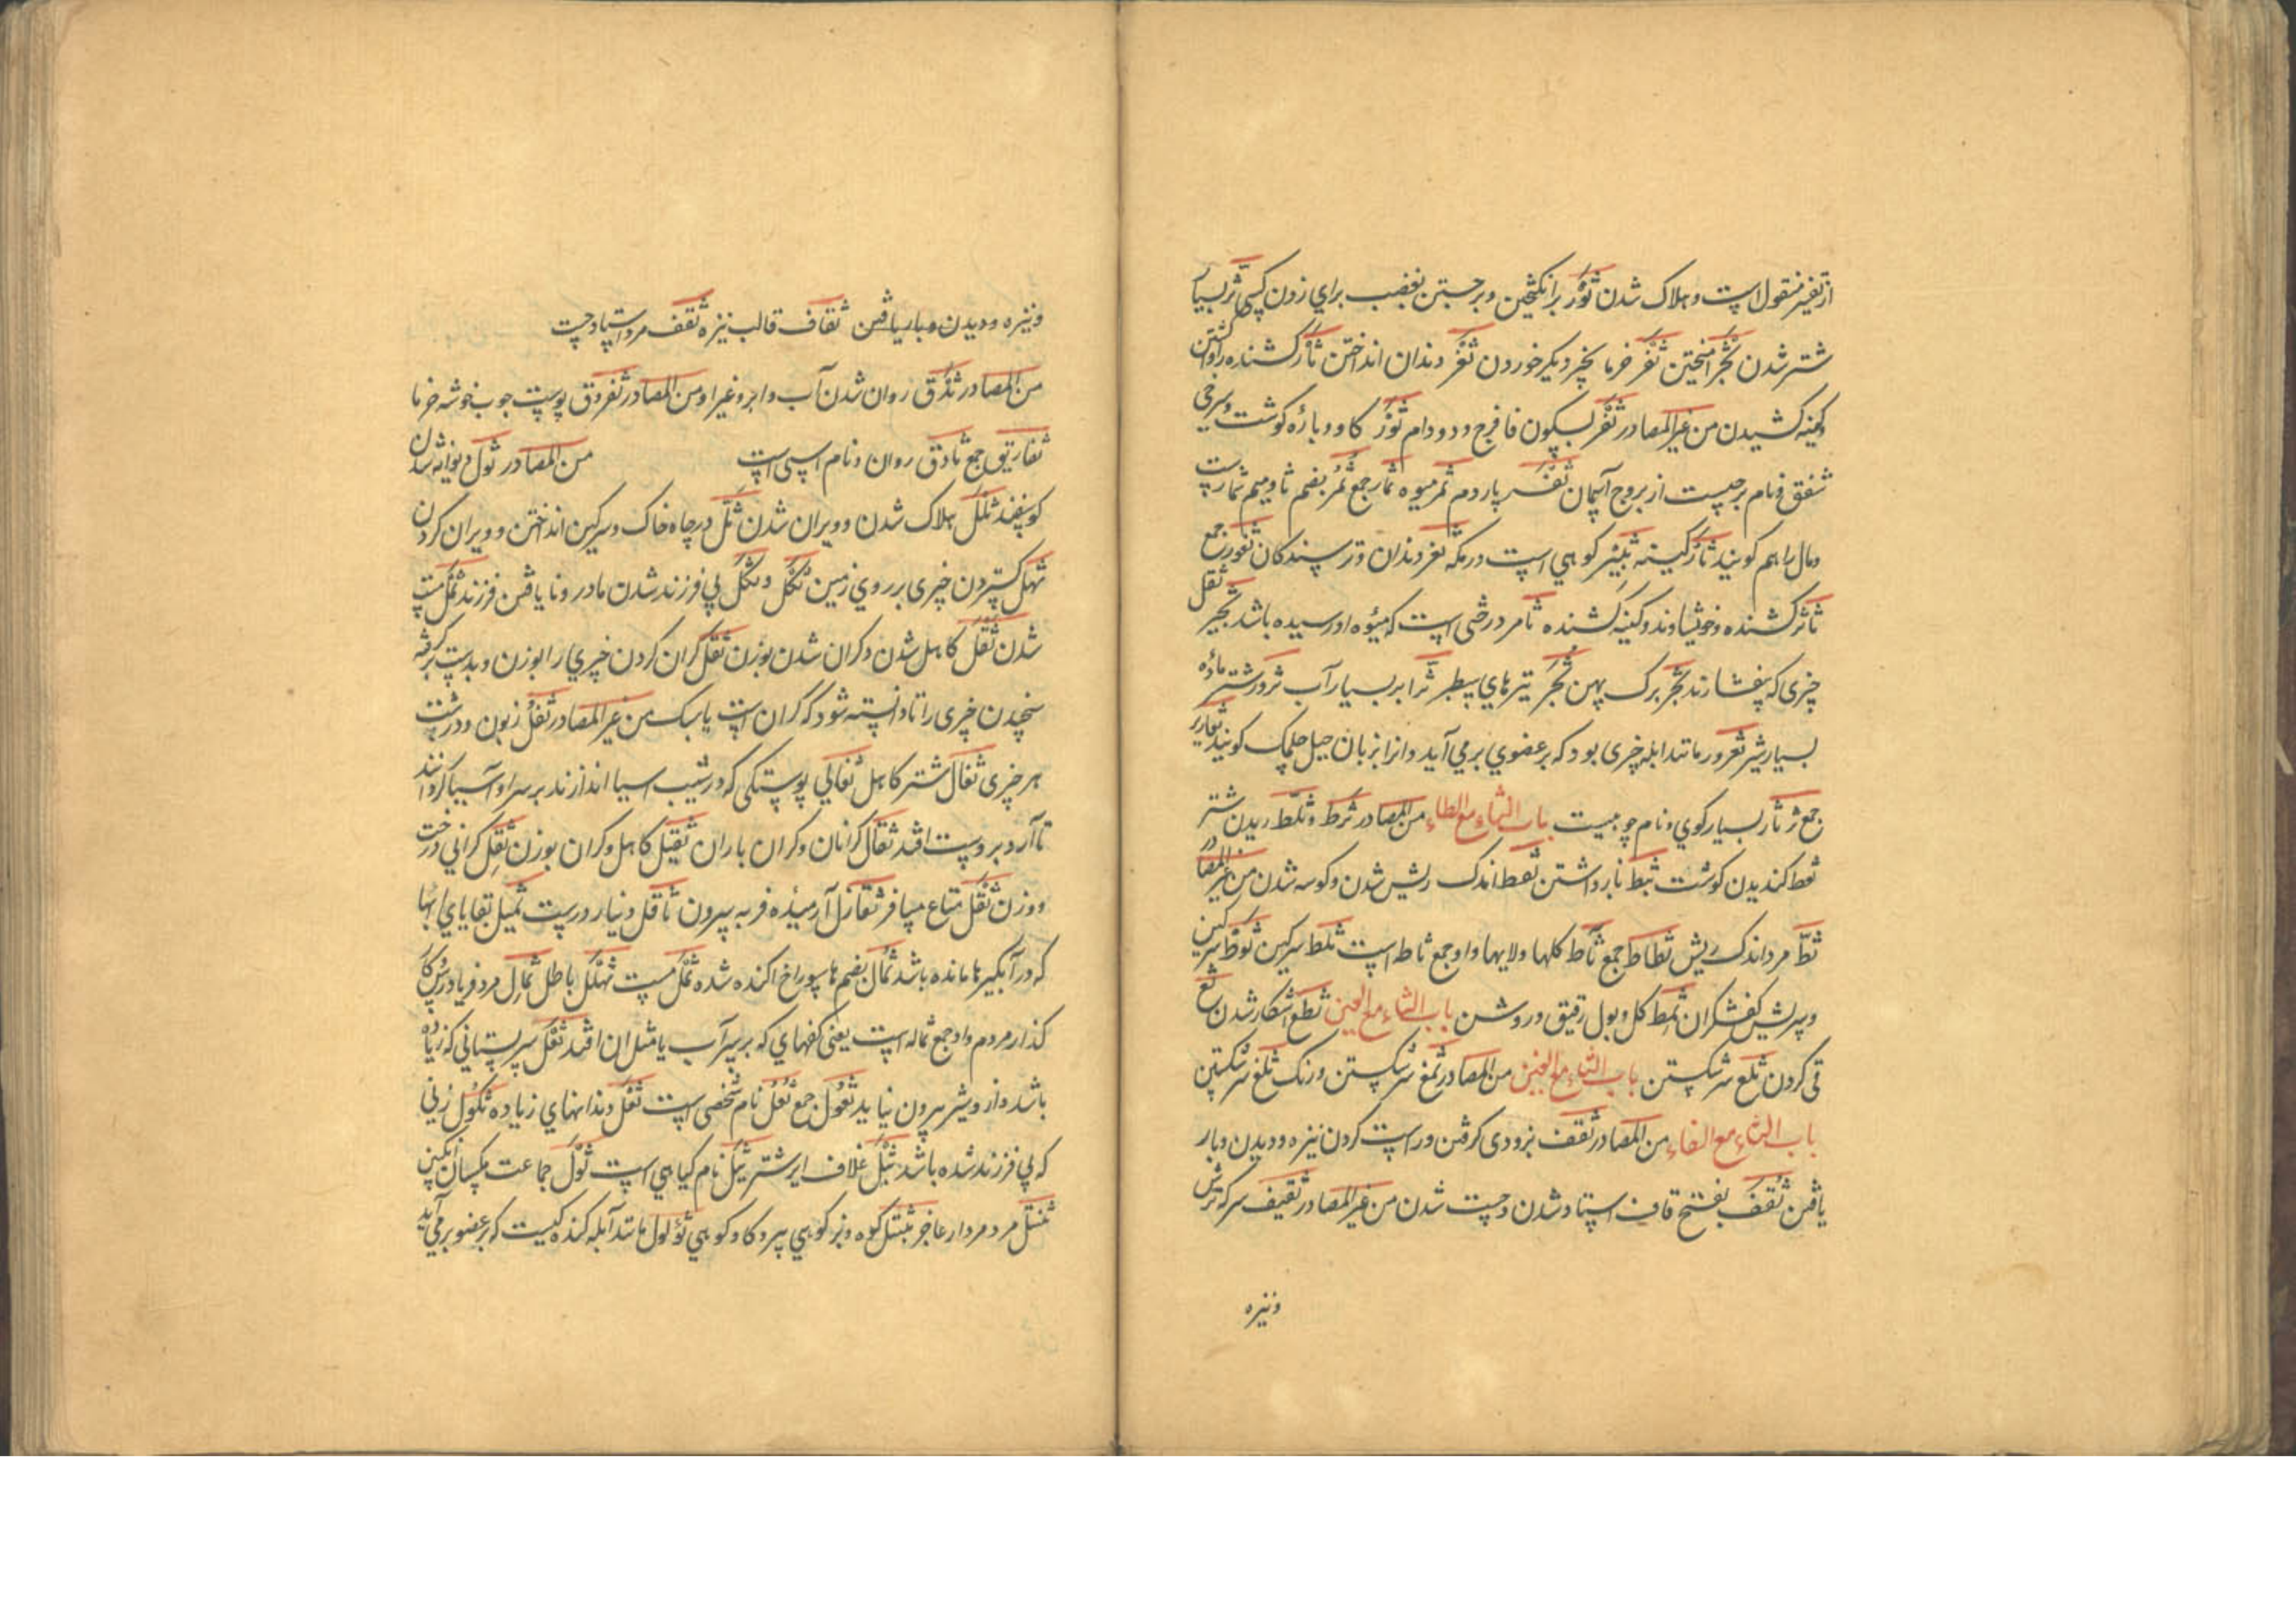 از تفسیر منقول است و هلاک شدن ثَوْر برانگیختن و برجستن بغضب برای زدن کسی ثرّ بسیار
شتر شدن ثجر آمیختن ثغر خرما بچیز دیگر خوردن ثغر دندان انداختن ثأر کشنده را واکشتن
و کینه کشیدن من غیر المصادر ثفر بسکون فا فرج دد و دام ثور کاو و پارهٔ کوشت و سرخی
شفق و نام برجیست از بروج آسمان ثفر پاردم ثمر میوه ثمار جمع ثمر بضم ثا و میم ثمارست
و مال را هم کویند ثأر کینه ثبیر کوهی است در مکه ثغر دندان و ترسیدکان ثغور جمع
ثائر کشنده و خویشاوند و کینه کشنده ثامر درختی است که میوه او رسیده باشد ثجیر ثقل
چیزی که بیفشارند ثجر برک پهن ثجر تیرهای سطبر ثر ابر بسیار آب ثرور شتر ماده
بسیار شیر ثعرور مانند ابله چیزی بود که بر عضوی برمی آید و انرا بزبان جیل حلمک کویند ثعاریر
جمع ثرثار بسیار کوی و نام جوییست باب الثاء مع الطاء من المصادر ثرط و ثلط ریدن شتر
ثعط کندیدن کوشت ثبط باز داشتن ثطط اندک ریش شدن و کوسه شدن من غیر المصادر
ثطّ مرد اندک ریش ثطاط جمع ثأط کلها و لایها و او جمع ثاطه است ثلط سرکین ثوط سرکین
و سریش کفشکران ثمط کل و بول رقیق و روشن باب الثاء مع العین ثطع آشکار شدن ثع
قی کردن ثلع سر شکستن باب الثاء مع الغین من المصادر ثمغ سر شکستن و رنک ثلغ سر شکستن
باب الثاء مع الفاء من المصادر ثقف بزودی کرفتن و راست کردن نیزه و دیدن و باز
یافتن ثقف بفتح قاف استاد شدن و چست شدن من غیر المصادر ثقیف سرکه ترش
و نیزه
و نیزه و دیدن و باز یافتن ثقاف قالب نیزه ثقف مرد استاد چست
من المصادر ثدق روان شدن آب و ابر و غیر او من المصادر ثفروق پوست چوب خوشه خرما
ثفاریق جمع ثادق روان و نام اسبی است من المصادر ثول دیوانه شدن
کوسفند ثلل هلاک شدن و ویران شدن ثلّ در چاه خاک و سرکین انداختن و ویران کردن
ثهل کستردن چیزی بر روی زمین ثکل و ثکل بی فرزند شدن مادر و نا یافتن فرزند ثمل مست
شدن ثقل کاهل شدن و کران شدن بوزن ثقل کران کردن چیزی را بوزن و بدست برکرفته
سنجیدن چیزی را تا دانسته شود که کران است یا سبک من غیر المصادر ثفل زبون و درشت
هر چیزی ثفال شتر کاهل ثفالی پوستکی که در شیب اسیا اندازند بر سر او آسیا کردانند
تا آرد برو ست افتد ثقال کرانان و کران باران ثقیل کاهل و کران بوزن ثقل کرانی درخت
و وزن ثقل متاع مسافر ثفافل آرمیده فربه سرون ثاقل دنیار درست ثمیل بقایای ابها
که در آبکیرها مانده باشد ثمال بضم ها سوراخ اکنده شده ثمل مست ثهلل باطل ثمال مرد فریادرس کار
کذار مردم و او جمع ثماله است یعنی کفهای که بر سر آب یا مثل ان افتد ثعل سر پستانی که زیاده
باشد و از و شیر بیرون نیاید ثعول جمع ثعل نام شخصی است ثعل دندانهای زیاده ثکول زنی
که بی فرزند شده باشد ثیل غلاف ایر شتر ثیل نام کیاهی است ثول جماعت مکسان انکبین
ثنتل مرد مردار عاجز ثیتل کوه و بز کوهی پیر و کاو کوهی ثؤلول مانند آبله کنده کیست که بر عضو برمی آید